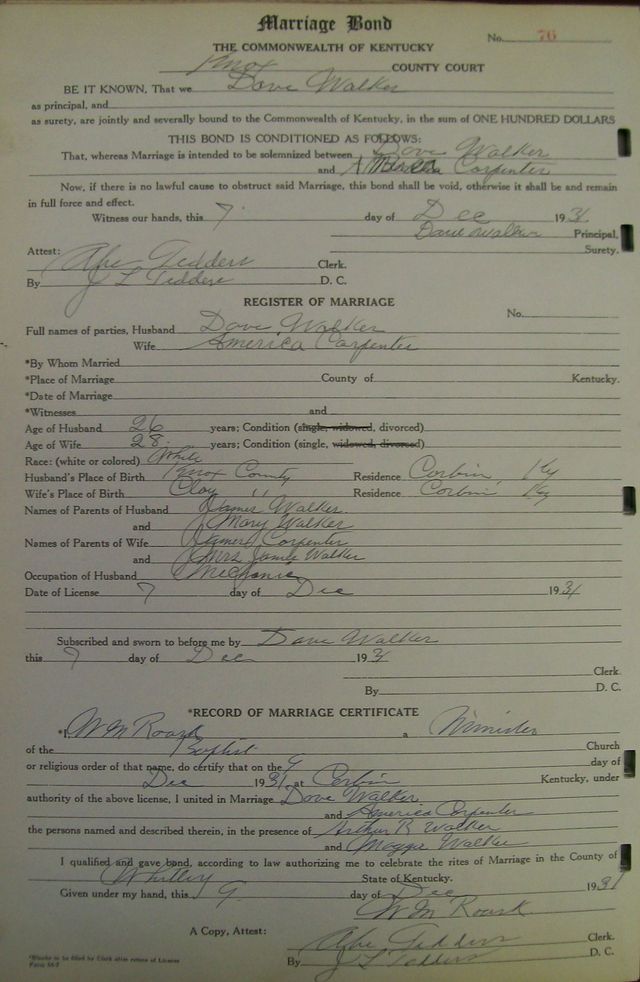 Marriage Bond
No. 76
THE COMMONWEALTH OF KENTUCKY
Knox COUNTY COURT
BE IT KNOWN, That we Dave Walker
as principal, and
as surety, are jointly and severally bound to the Commonwealth of Kentucky, in the sum of ONE HUNDRED DOLLARS
THIS BOND IS CONDITIONED AS FOLLOWS:
That, whereas Marriage is intended to be solemnized between Dave Walker
and America Carpenter
Now, if there is no lawful cause to obstruct said Marriage, this bond shall be void, otherwise it shall be and remain
in full force and effect.
Witness our hands, this 7 day of Dec 1931
Dave Walker Principal,
Surety.
Attest:
Abe Tedders Clerk.
By J L Tedders D. C.
REGISTER OF MARRIAGE
No.
Full names of parties, Husband Dave Walker
Wife America Carpenter
*By Whom Married
*Place of Marriage County of Kentucky.
*Date of Marriage
*Witnesses and
Age of Husband 26 years; Condition (single, widowed, divorced)
Age of Wife 28 years; Condition (single, widowed, divorced)
Race: (white or colored) White
Husband's Place of Birth Knox County Residence Corbin, Ky
Wife's Place of Birth Clay " Residence Corbin Ky
Names of Parents of Husband James Walker
and Mary Walker
Names of Parents of Wife James Carpenter
and Mrs Walker
Occupation of Husband Mechanic
Date of License 7 day of Dec 1931
Subscribed and sworn to before me by Dave Walker
this 7 day of Dec 1931
Clerk
By D. C.
*RECORD OF MARRIAGE CERTIFICATE
*I, WM Roark a Minister
of the Baptist Church
or religious order of that name, do certify that on the 9 day of
Dec 1931 at Corbin Kentucky, under
authority of the above license, I united in Marriage Dave Walker
and America Carpenter
the persons named and described therein, in the presence of Arthur R Walker
and Maggie Walker
I qualified and gave bond, according to law authorizing me to celebrate the rites of Marriage in the County of
Whitley State of Kentucky.
Given under my hand, this 9 day of Dec 1931
WM Roark
A Copy, Attest:
Abe Tedders Clerk.
By J L Tedders D. C.
*Blanks to be filled by Clerk after return of License